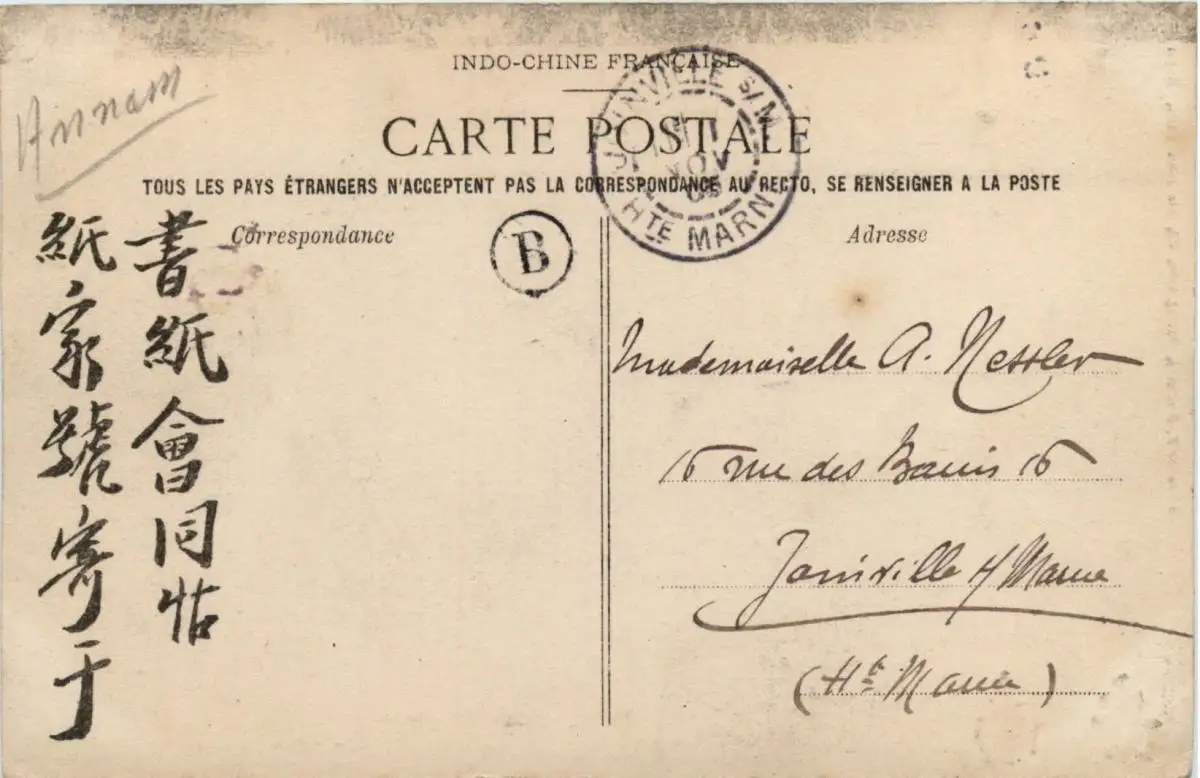 Annam
INDO-CHINE FRANÇAISE
CARTE POSTALE
TOUS LES PAYS ÉTRANGERS N'ACCEPTENT PAS LA CORRESPONDANCE AU RECTO, SE RENSEIGNER A LA POSTE
Correspondance
Adresse
JOINVILLE S/M
NOV
HTE MARNE
B
書紙會同怙
紙家號寄于
Mademoiselle A. Nessler
16 rue des Bains 16
Joinville s/ Marne
(Hte Marne)